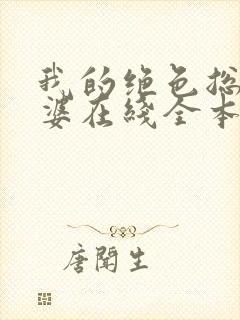 我的绝色总
婆在线全本
唐闻生